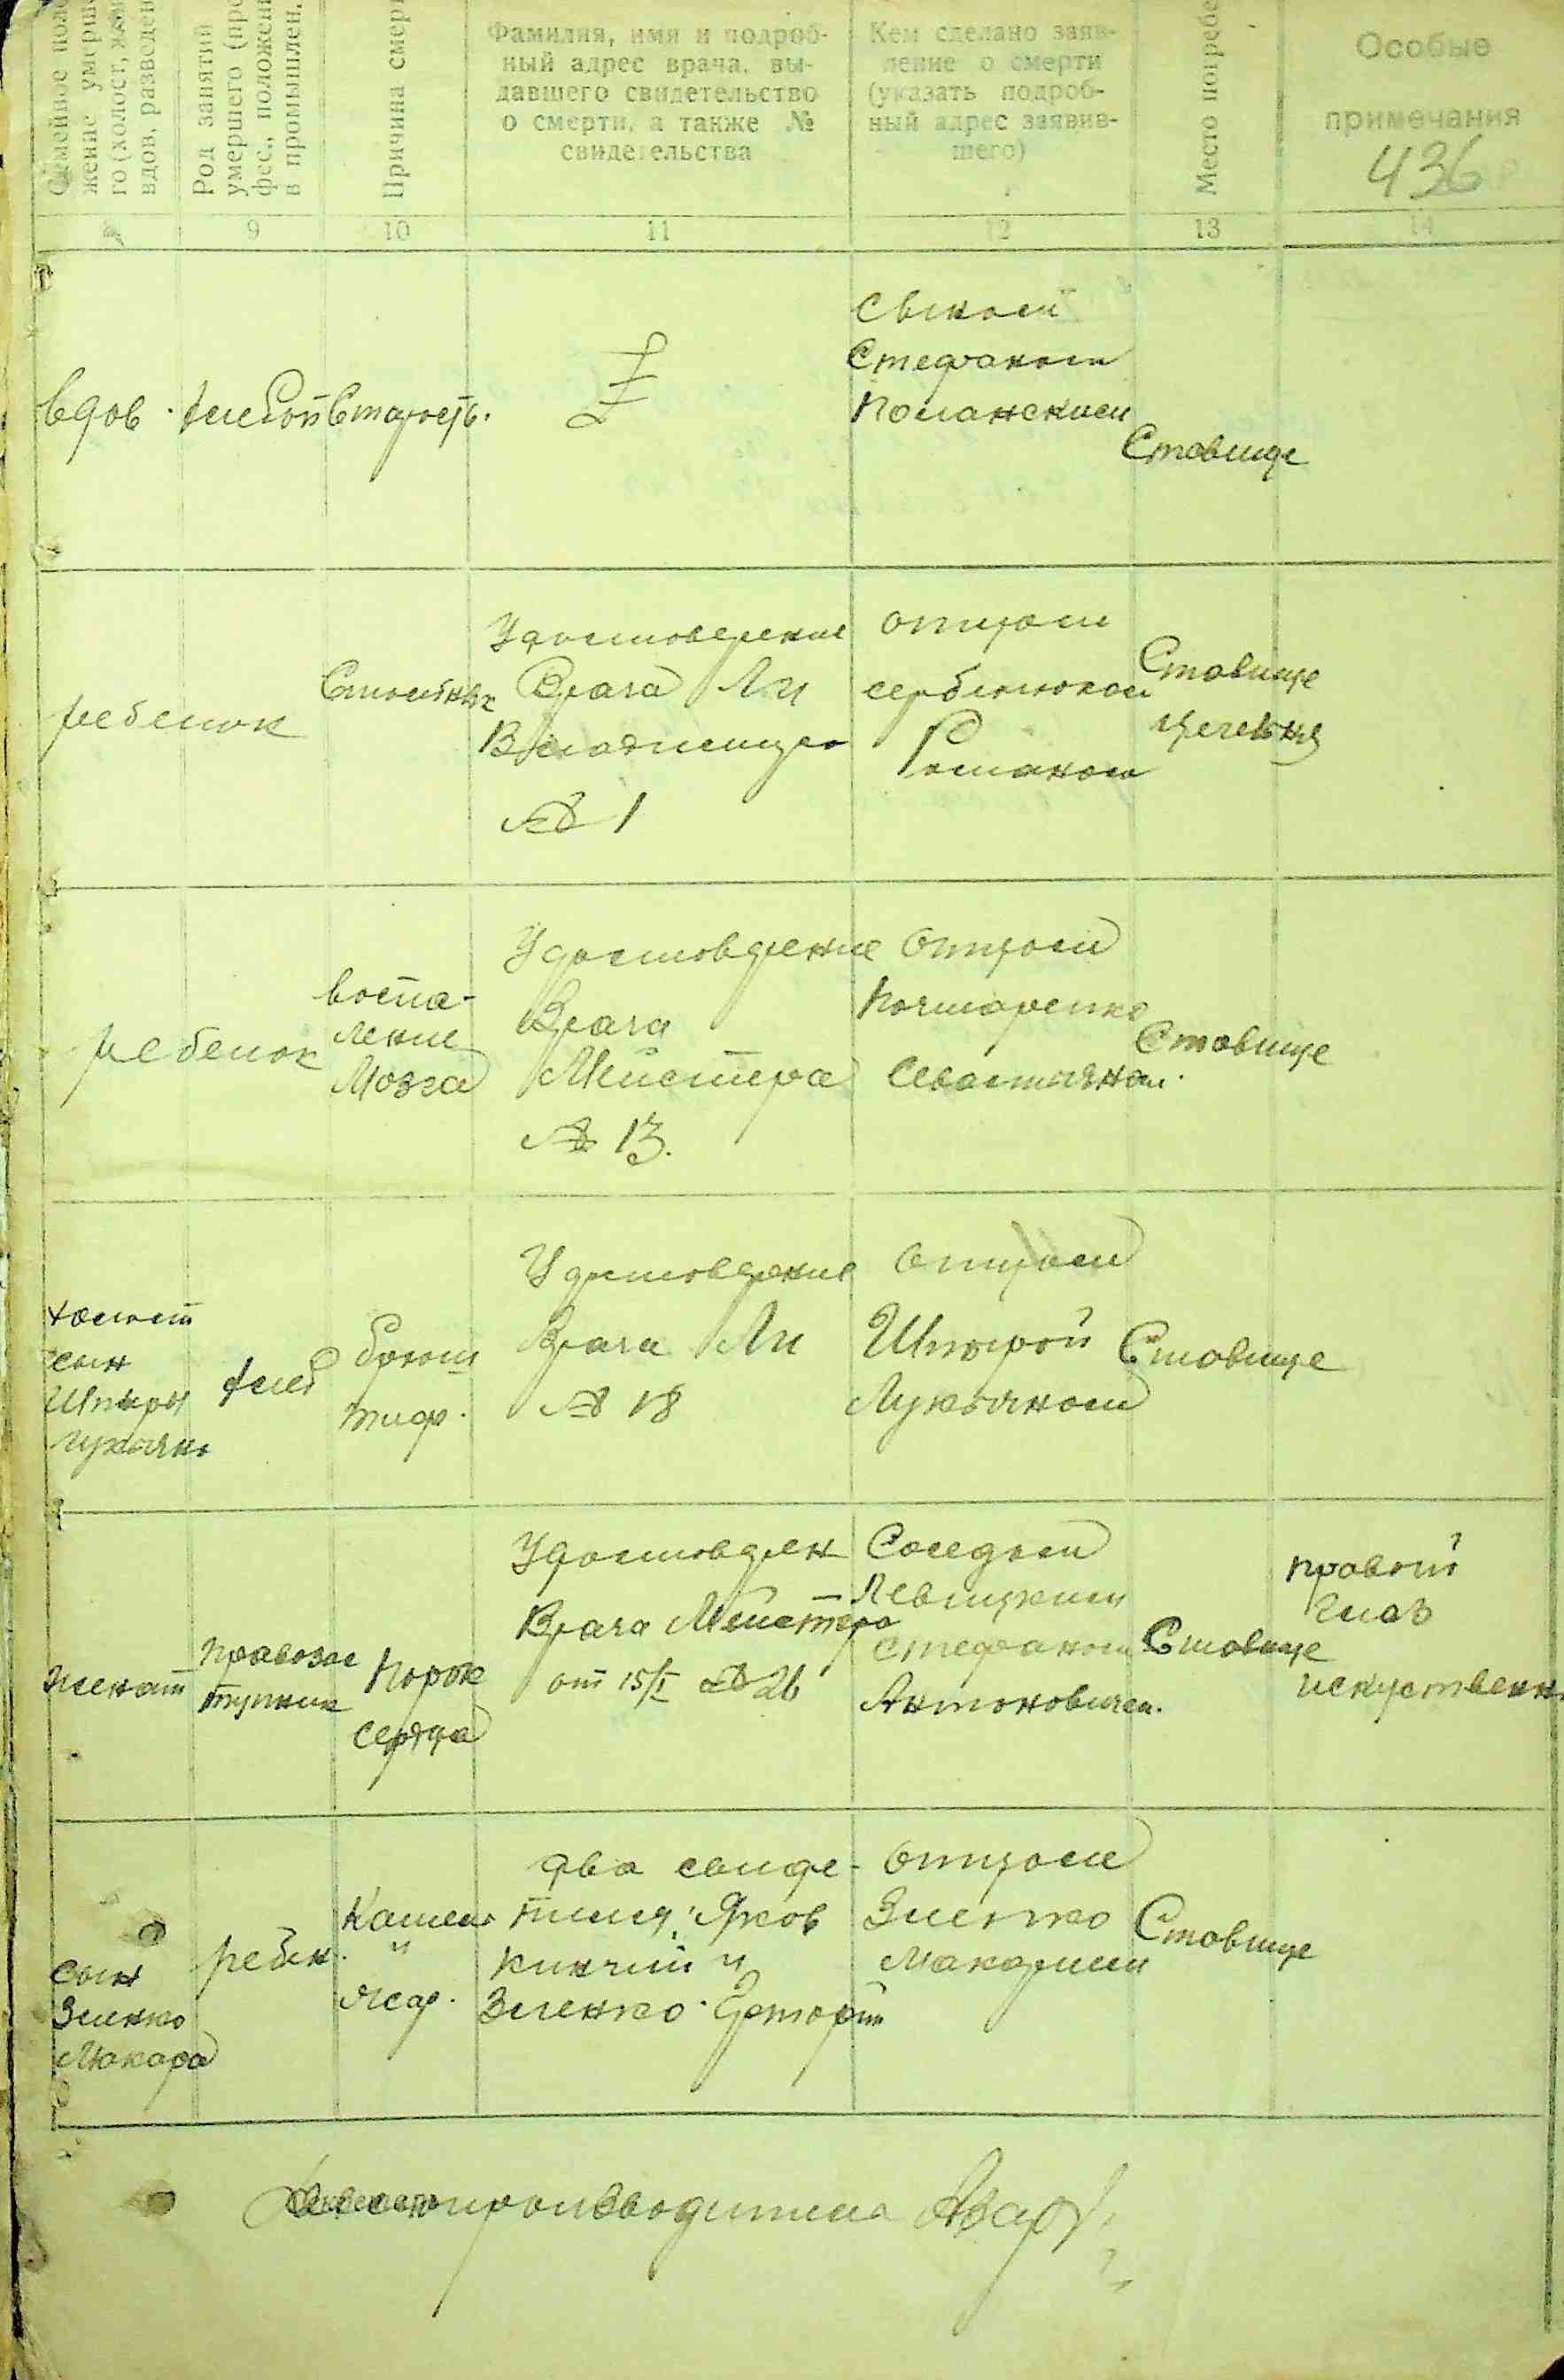 Семейное поло-
жение умерше-
го (холост, жен
вдов, разведен
Род занятий
умершего (про
фес., положен
в промышлен.
Причина смер
Фамилия, имя и подроб-
ный адрес врача, вы-
давшего свидетельство
о смерти, а также №
свидетельства
Кем сделано заяв-
ление о смерти
(указать подроб-
ный адрес заявив-
шего)
Место погребе
Особые
примечания
436
9
10
11
12
13
14
вдов.
хлебоп
Старость.
Сыном
Стефаном
Поланским
Ставище
ребенок
Удостоверение
Врача Ли
№ 1
отцом
Сербинюком
Романом
Ставище
ребенок
воспа-
ление
Мозга
Удостоверение
Врача
Мейстера
№ 13.
Отцом
Кочмаренко
Севастианом.
Ставище
холост
сын
Шпыры
Лукьяна
хлеб
брюш
тиф.
Удостоверение
Врача Ли
№ 18
Отцом
Шпырой
Лукьяном
Ставище
женат
правозас
тупник
Порок
сердца
Удостоверен
Врача Мейстера
от 15/I № 26
Соседом
Левицким
Стефаном
Антоновичем.
Ставище
правый
глаз
искуственн
сын
Зленко
Макара
ребен.
Кашель
Два свиде-
теля: Яков
и
Зленко
отцом
Зленко
Макарием
Ставище
Делопроизводитель